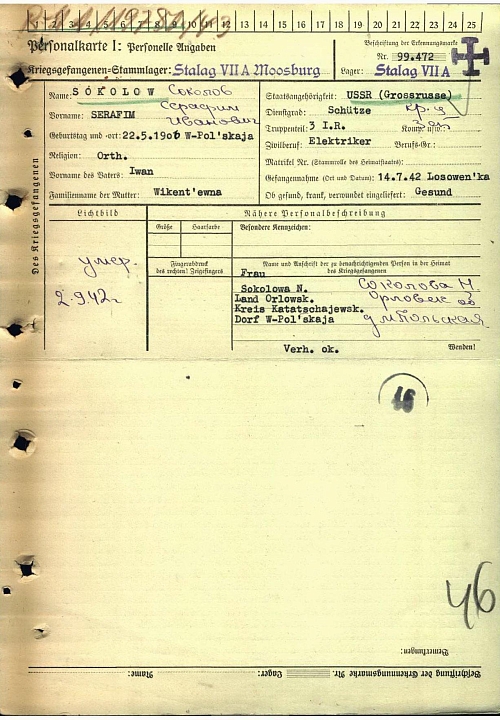 1 2 3 4 5 6 7 8 9 10 11 12 13 14 15 16 17 18 19 20 21 22 23 24 25
Personalkarte I: Personelle Angaben
Beschriftung der Erkennungsmarke
Nr. 99.472
Kriegsgefangenen=Stammlager: Stalag VII A Moosburg
Lager: Stalag VII A
Des Kriegsgefangenen
Name: SOKOLOW Соколов
Vorname: SERAFIM Серафим Иванович
Geburtstag und -ort: 22.5.1906 W-Pol'skaja
Religion: Orth.
Vorname des Vaters: Iwan
Familienname der Mutter: Wikent'ewna
Staatsangehörigkeit: USSR (Grossrusse)
Dienstgrad: Schütze
Truppenteil: 3 I.R. Komp. usw.:
Zivilberuf: Elektriker Berufs-Gr.:
Matrikel Nr. (Stammrolle des Heimatstaates):
Gefangennahme (Ort und Datum): 14.7.42 Losowen'ka
Ob gesund, krank, verwundet eingeliefert: Gesund
Lichtbild
умер.
2.9.42г
Nähere Personalbeschreibung
Größe Haarfarbe Besondere Kennzeichen:
Fingerabdruck
des rechten! Zeigefingers
Name und Anschrift der zu benachrichtigenden Person in der Heimat
des Kriegsgefangenen
Frau
Sokolowa N. Соколова Н.
Land Orlowsk.
Kreis Katatschajewsk.
Dorf W-Pol'skaja
Verh. ok.
Wenden!
46
Bemerkungen:
Beschriftung der Erkennungsmarke Nr. Lager: Name: